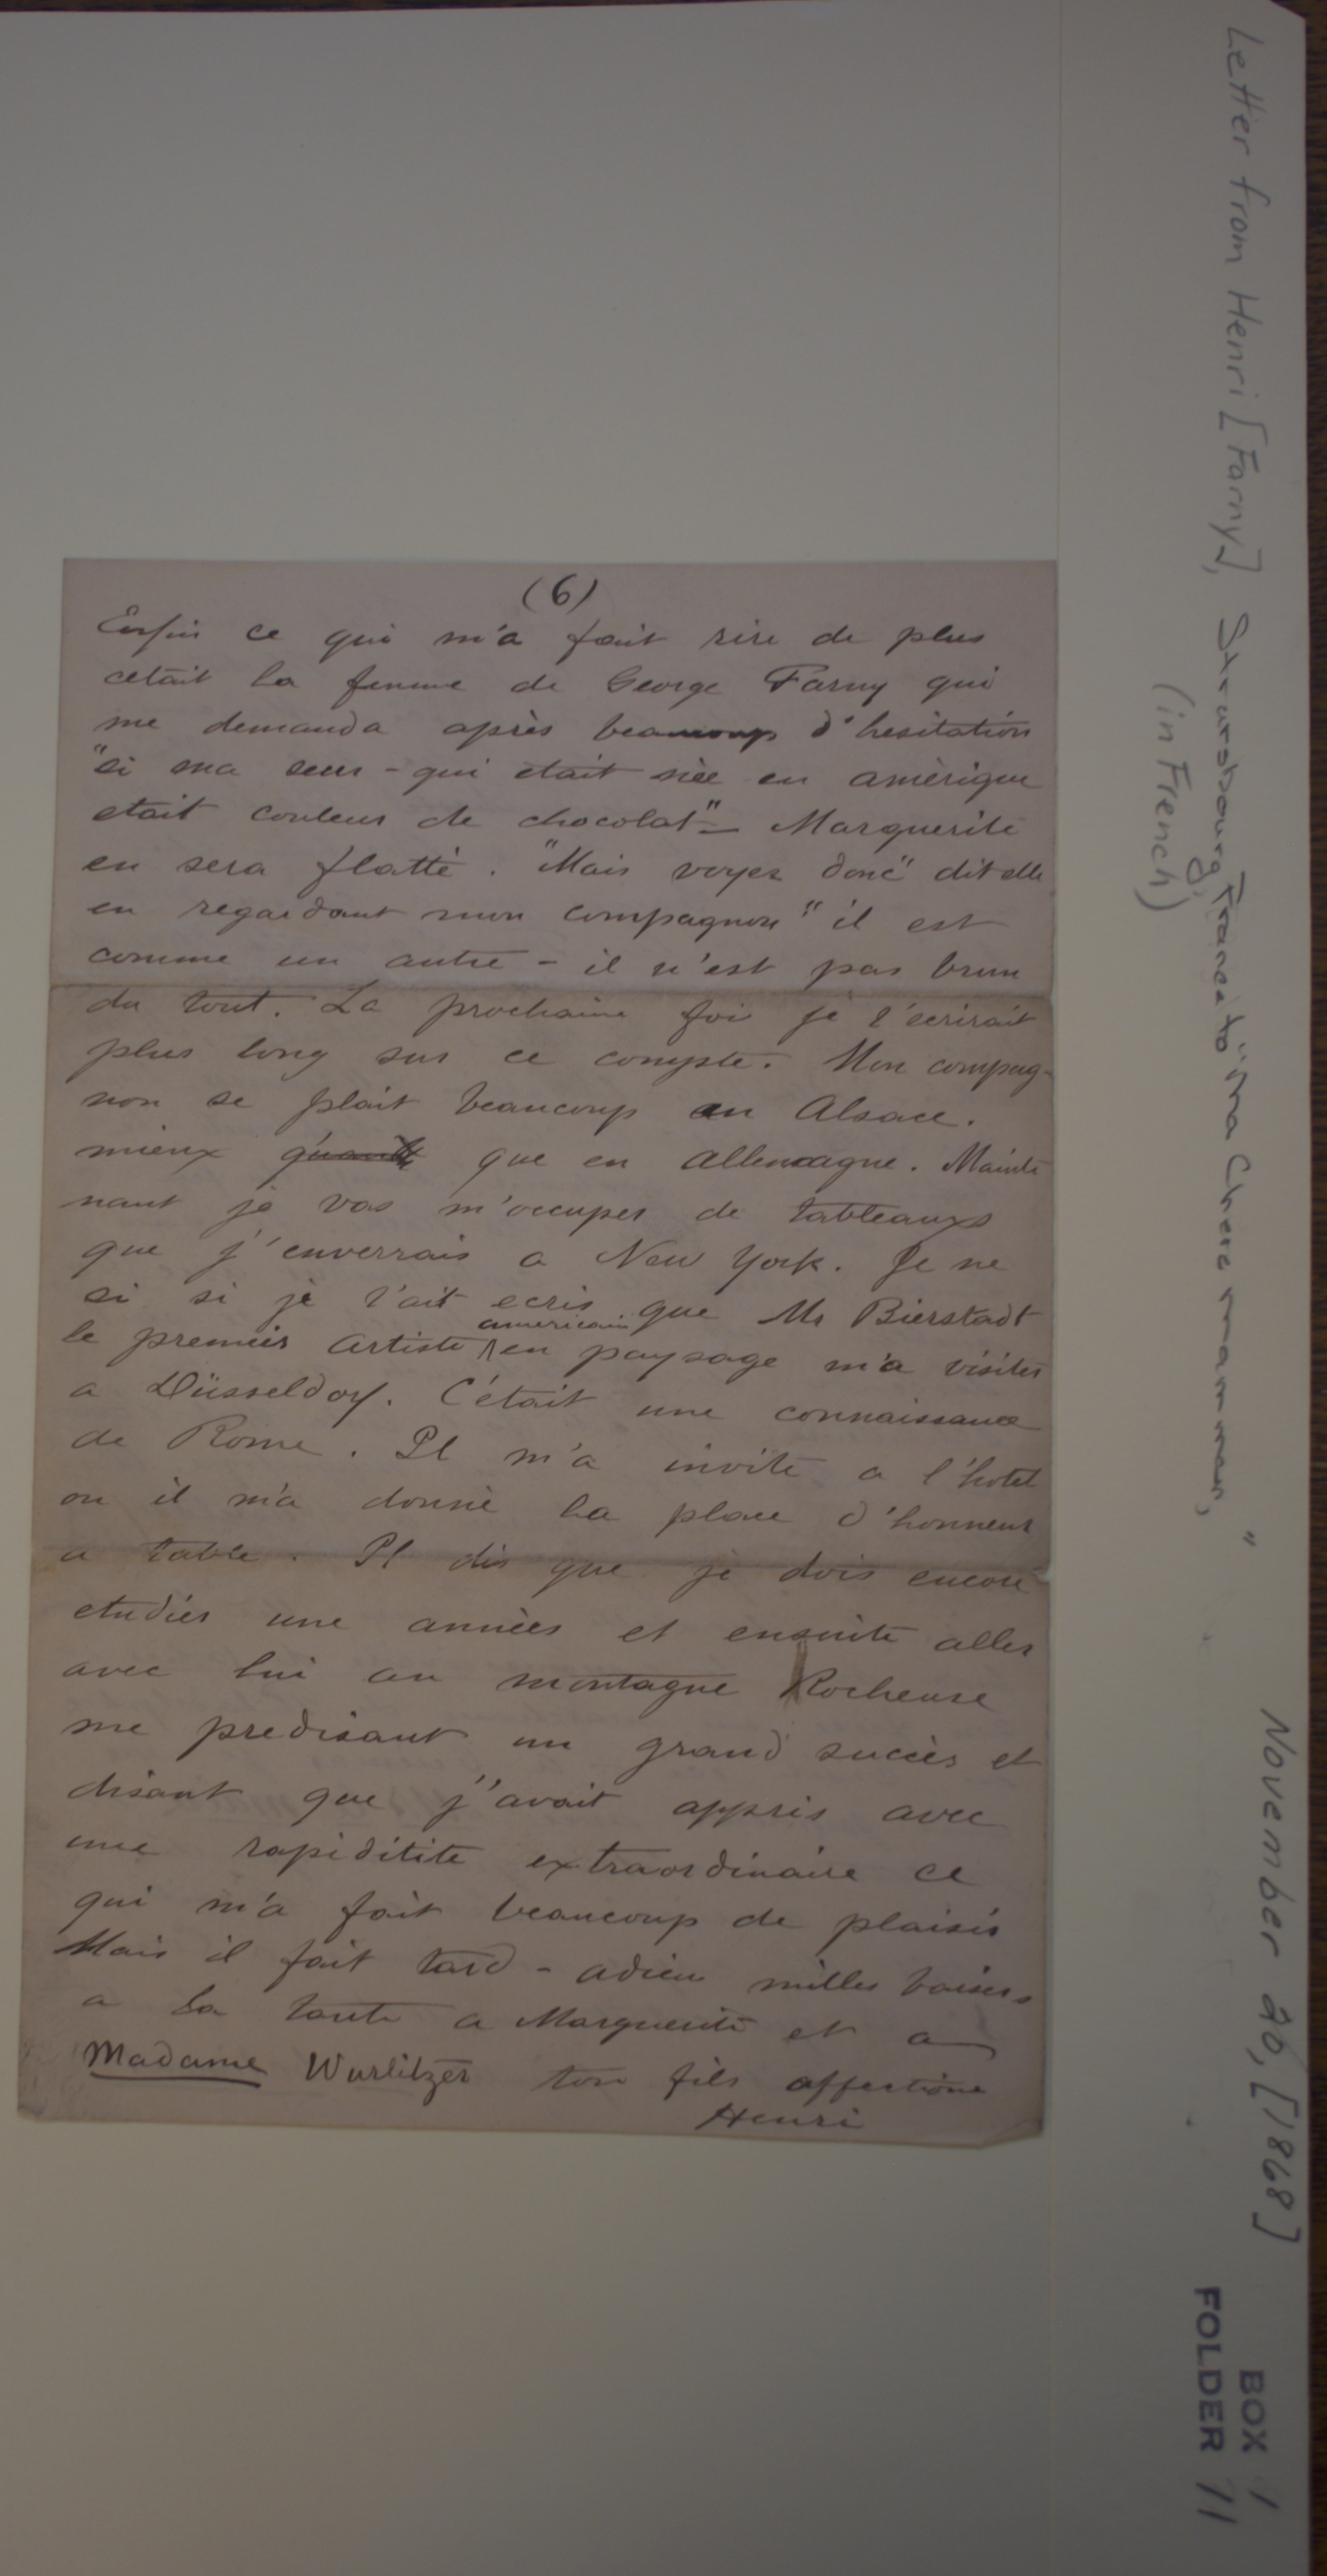 (6)
Enfin ce qui m'a fait rire de plus
cetait la femme de George Farny qui
me demanda après beaucoup d'hesitation
"si ma seur - qui etait née en amèrique
etait couleur de chocolat" - Marguerite
en sera flatté. "Mais voyez donc" dit elle
en regardant mon compagnon "il est
comme un autre - il n'est pas brun
du tout. La prochaine foi je t'ecrirait
plus long sur ce compte. Mon compag-
non se plait beaucoup en Alsace.
mieux que en Allemagne. Mainte
nant je vas m'occuper de tableaux
que j'enverrais a New York. Je ne
si si je t'ait ecris que Mr Bierstadt
le premier artiste americain en paysage m'a visiter
a Düsseldorf. C'était une connaissance
de Rome. Il m'a invité a l'hotel
ou il m'a donné la place d'honneur
a table. Il dis que je dois encore
etudier une années et ensuite aller
avec lui au montagne Rocheuse
me predisant un grand succès et
disant que j'avait appris avec
une rapiditite extraordinaire ce
qui m'a fait beaucoup de plaisir
Mais il fait tard - adieu milles baisers
a la tante a Marguerite et a
Madame Wurlitzer ton fils affectione
Henri
Letter from Henri [Farny], Strassbourg, France to "Ma Chere mamman,"
(in French)
November 20, [1868]
BOX 1
FOLDER 11